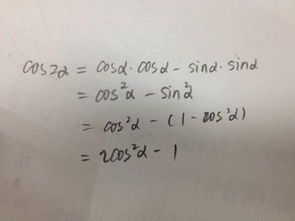 cos2α = cosα·cosα - sinα·sinα
= cos²α - sin²α
= cos²α - (1 - cos²α)
= 2cos²α - 1